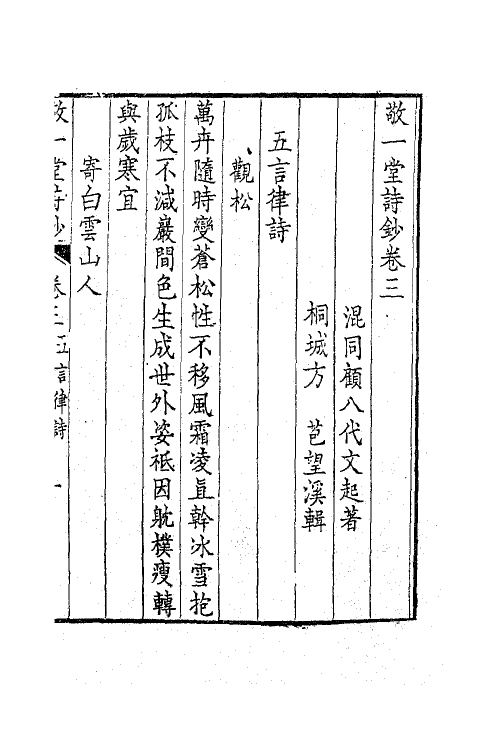 敬一堂詩鈔卷三
混同顧八代文起著
桐城方　苞望溪輯
五言律詩
觀松
萬卉隨時變蒼松性不移風霜凌直幹冰雪抱
孤枝不減巖間色生成世外姿祗因躭樸瘦轉
與歲寒宜
寄白雲山人
敬一堂詩鈔 卷三 五言律詩 一